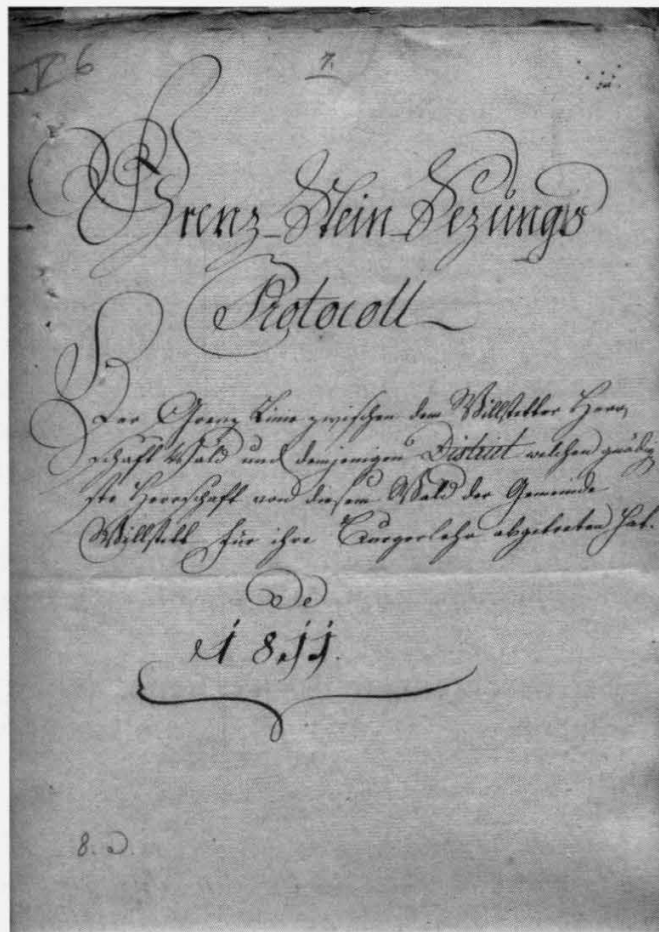 V 6
7.
Grenz-Stein-Sezungs
Protocoll
Der Grenz Linie zwischen dem Willstetter Herr,
schaft Wald und demjenigen District welchen gnädig,
ste Herrschaft von diesem Wald der Gemeinde
Willstett für ihre abgetreten hat.
De
1811.
8. a.